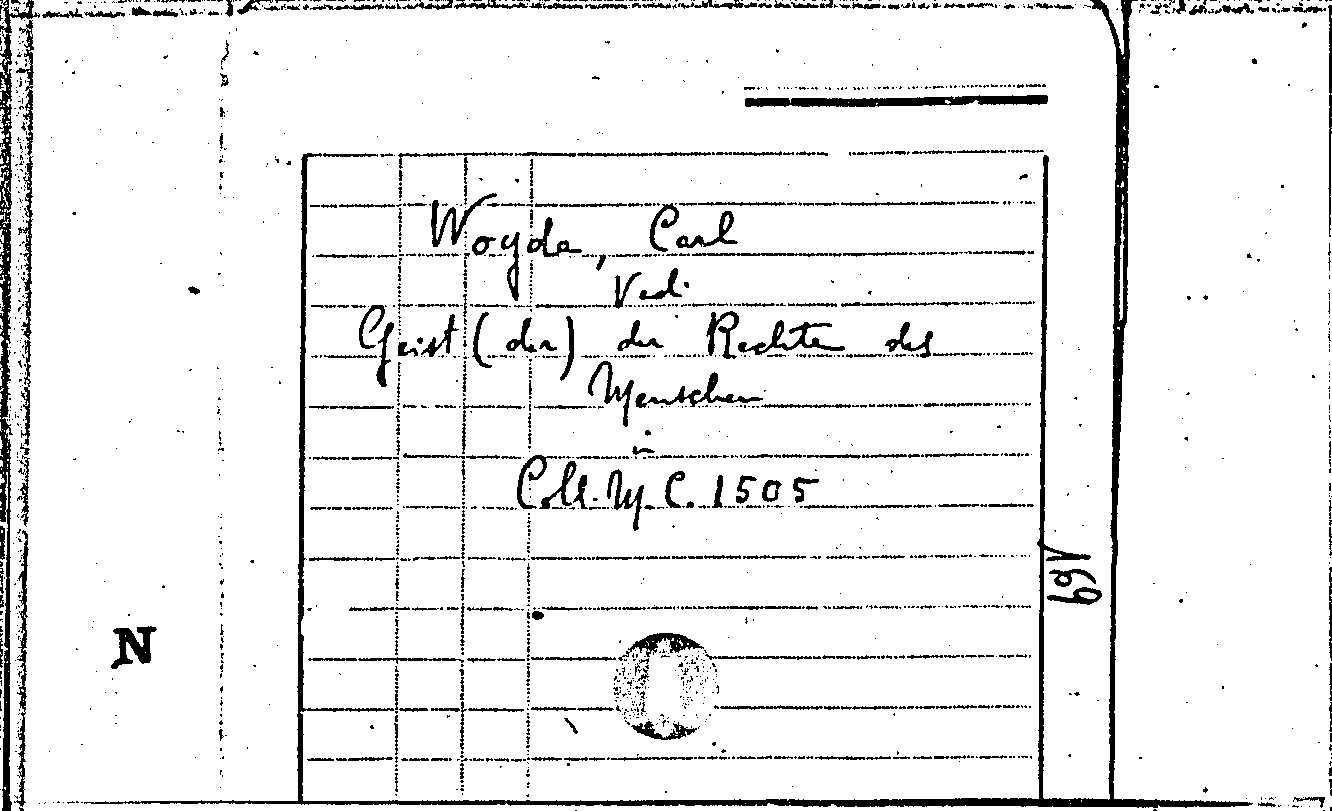 Woyda, Carl
Vedi
Geist (der) der Rechten des
Menschen
in
Coll. M. C. 1505
169
N